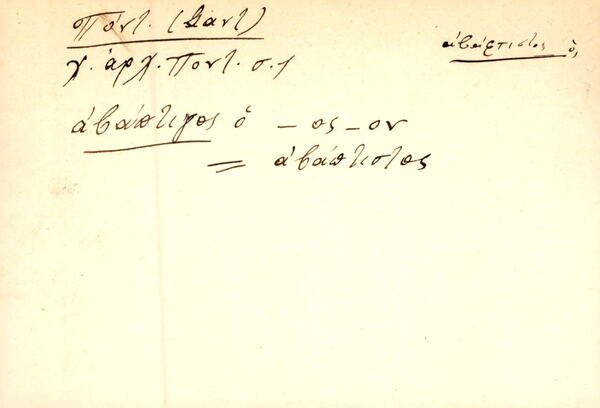 Πόντ. (Σαντ)
ἀβάπτιστος ὁ,
γ. ἀρχ. Ποντ. σ. 1
ἀβάπτιγος ὁ -ος -ον
= ἀβάπτιστος